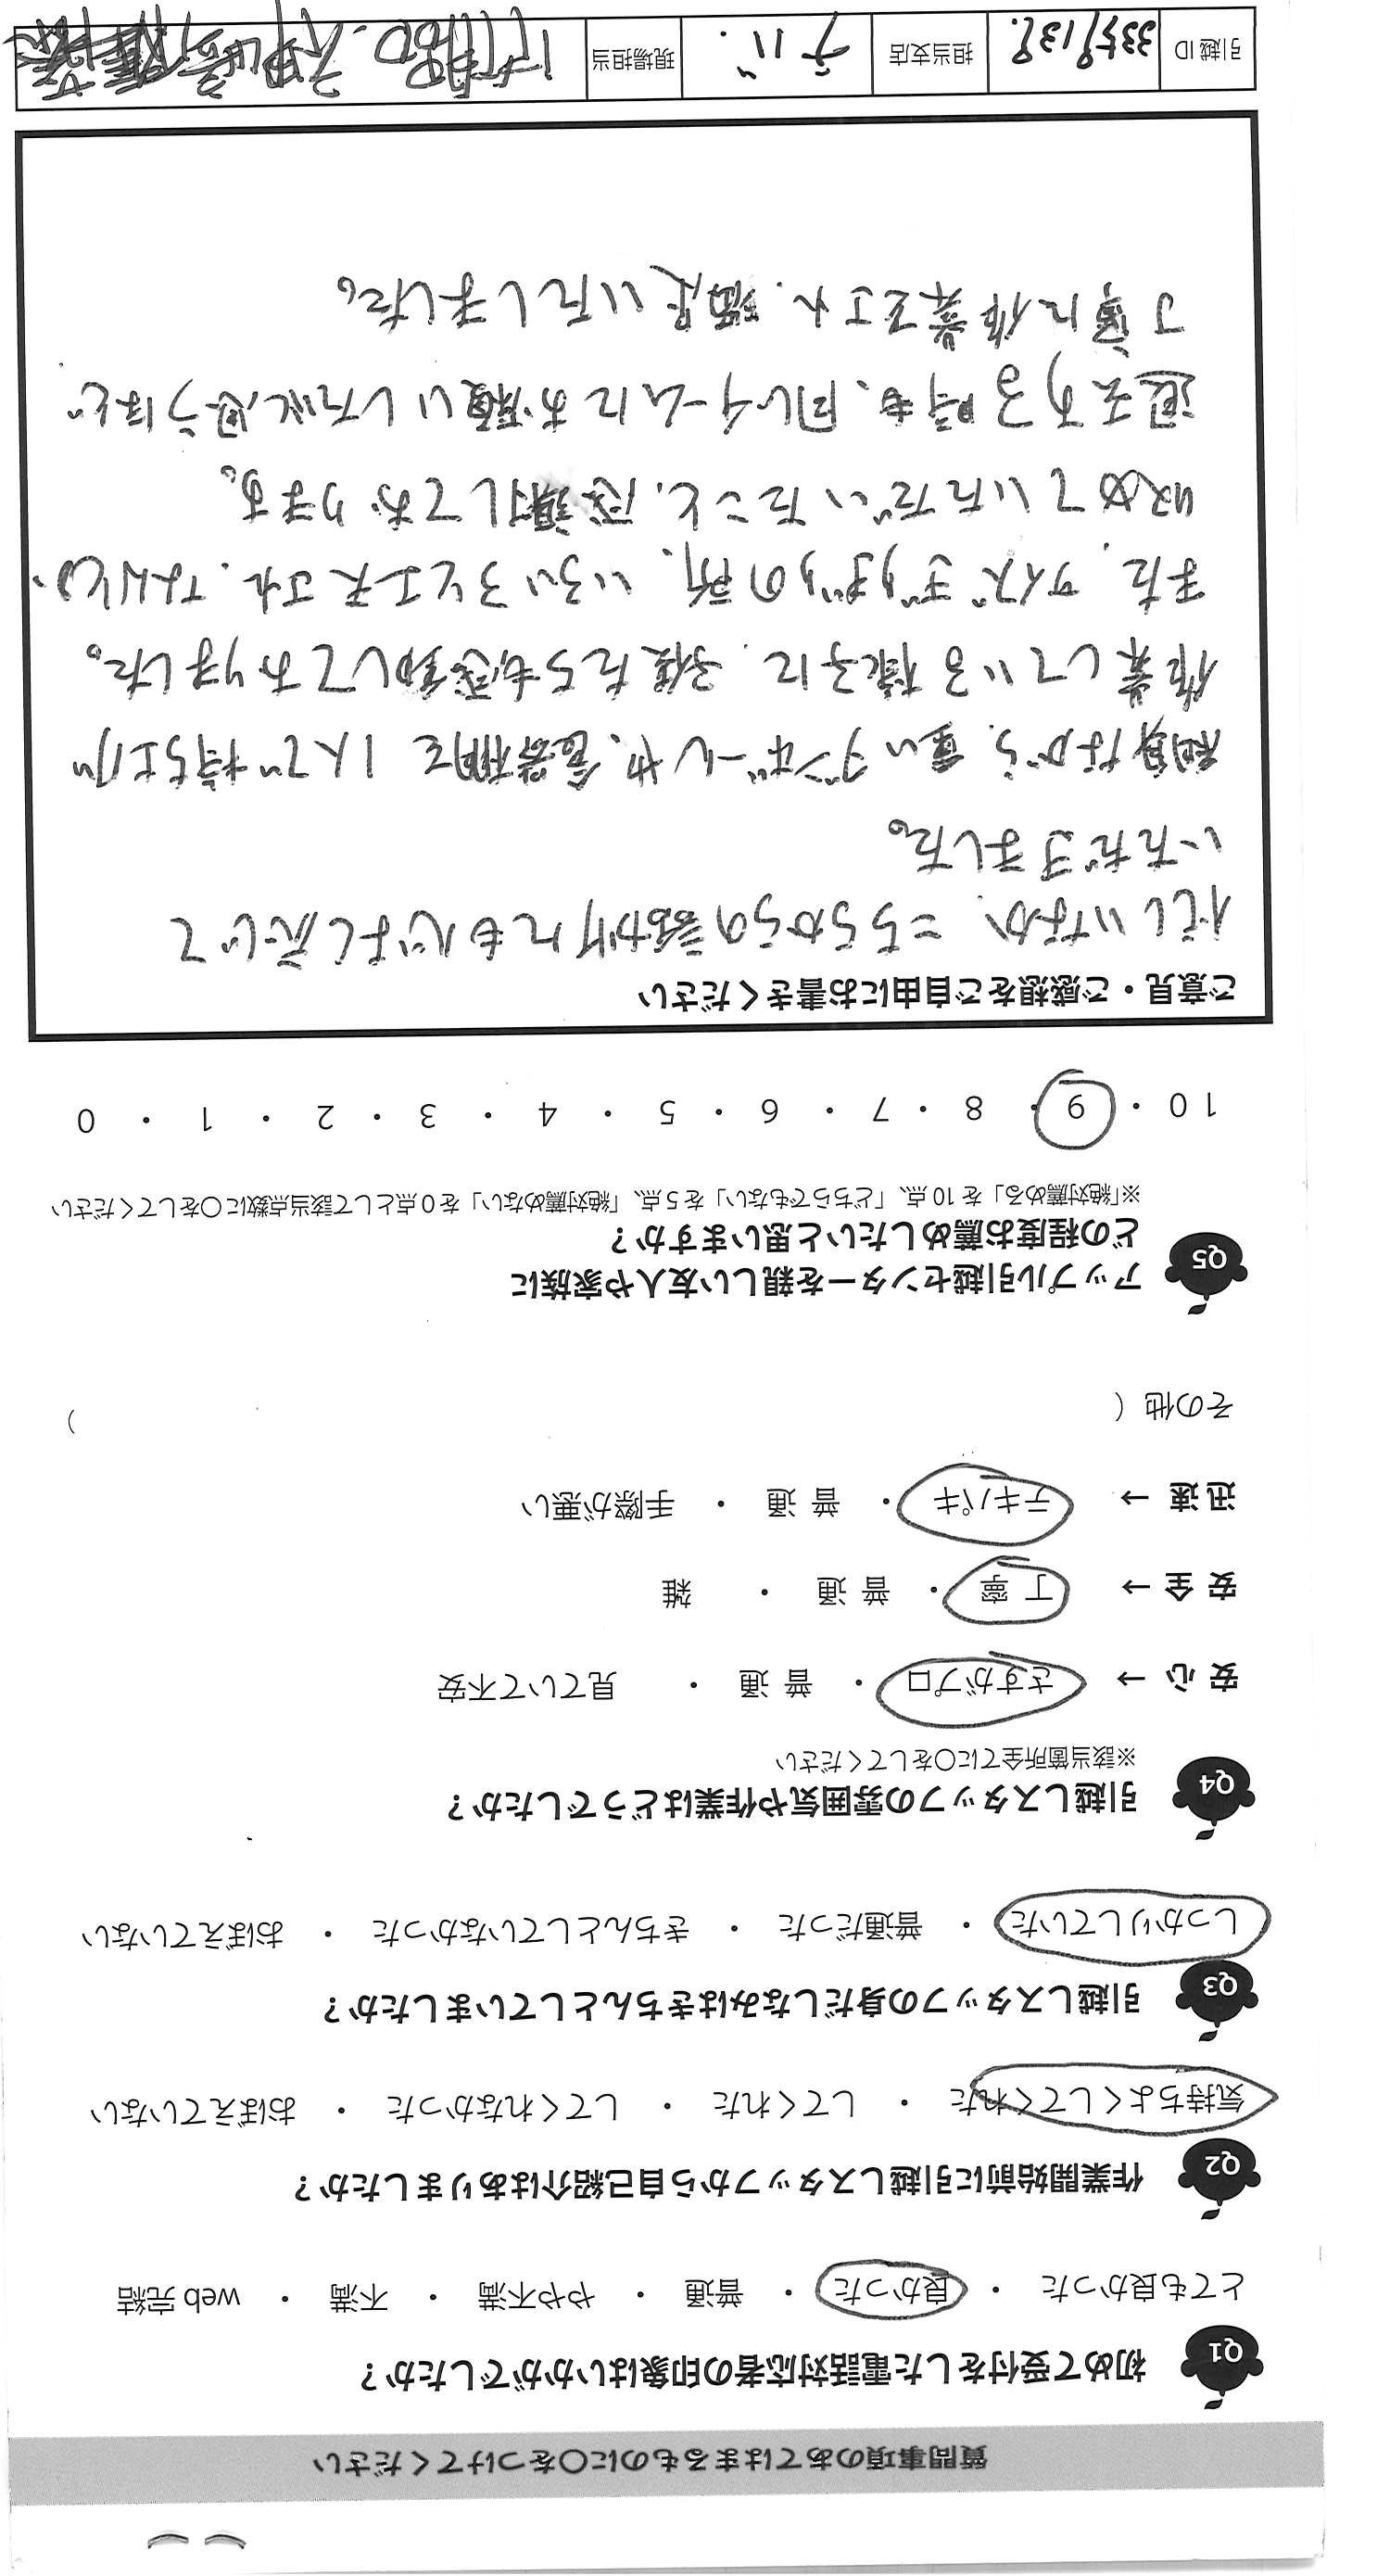 質問事項のあてはまるものに〇をつけてください
Q1 初めて受付をした電話対応者の印象はいかがでしたか？
とても良かった ・ 良かった ・ 普通 ・ やや不満 ・ 不満 ・ web完結
Q2 作業開始前に引越しスタッフから自己紹介はありましたか？
気持ちよくしてくれた ・ してくれた ・ してくれなかった ・ おぼえていない
Q3 引越しスタッフの身だしなみはきちんとしていましたか？
しっかりしていた ・ 普通だった ・ きちんとしていなかった ・ おぼえていない
Q4 引越しスタッフの雰囲気や作業はどうでしたか？
※該当箇所全てに〇をしてください
安心 → さすがプロ ・ 普通 ・ 見ていて不安
安全 → 丁寧 ・ 普通 ・ 雑
迅速 → テキパキ ・ 普通 ・ 手際が悪い
その他 （ ）
Q5 アップル引越センターを親しい友人や家族に
どの程度お薦めしたいと思いますか？
※「絶対薦める」を10点、「どちらでもない」を5点、「絶対薦めない」を0点として該当点数に〇をしてください
10 ・ 9 ・ 8 ・ 7 ・ 6 ・ 5 ・ 4 ・ 3 ・ 2 ・ 1 ・ 0
ご意見・ご感想をご自由にお書きください
忙しいなか、こちらからの話かけにも心よく応じて
いただきました。
細身ながら、重いダンボールや、食器棚を1人で持ち上げ
作業している様子に、子供たちも感動しておりました。
また、サイズギリギリの所、いろいろと工夫され、なんとか、
収めていただいたこと、感謝しております。
退去する時も、同じチームにお願いしたいと思うほど
丁寧に作業され、満足いたしました。
引越ID 担当支店 チバ 現場担当